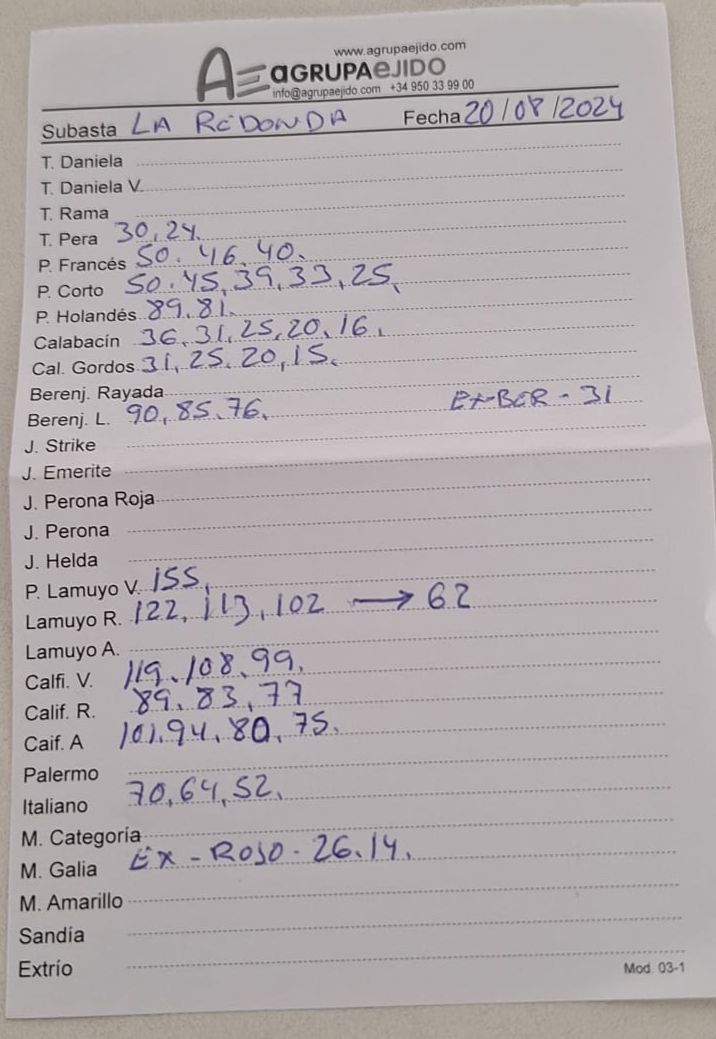 www.agrupaejido.com
AE aGRUPAeJIDO
info@agrupaejido.com +34 950 33 99 00
Subasta LA REDONDA Fecha 20/08/2024
T. Daniela
T. Daniela V.
T. Rama
T. Pera 30, 24.
P. Francés 50. 46. 40.
P. Corto 50. 45, 39, 33, 25,
P. Holandés 89. 81.
Calabacín 36, 31, 25, 20, 16,
Cal. Gordos 31, 25. 20, 15.
Berenj. Rayada
Berenj. L. 90, 85. 76, EX-BER - 31
J. Strike
J. Emerite
J. Perona Roja
J. Perona
J. Helda
P. Lamuyo V. 155,
Lamuyo R. 122, 113, 102 → 62
Lamuyo A.
Calfi. V. 119. 108. 99,
Calif. R. 89. 83, 77
Caif. A 101. 94, 80, 75.
Palermo
Italiano 70, 64, 52.
M. Categoría
M. Galia EX - ROJO - 26. 14,
M. Amarillo
Sandía
Extrío
Mod. 03-1